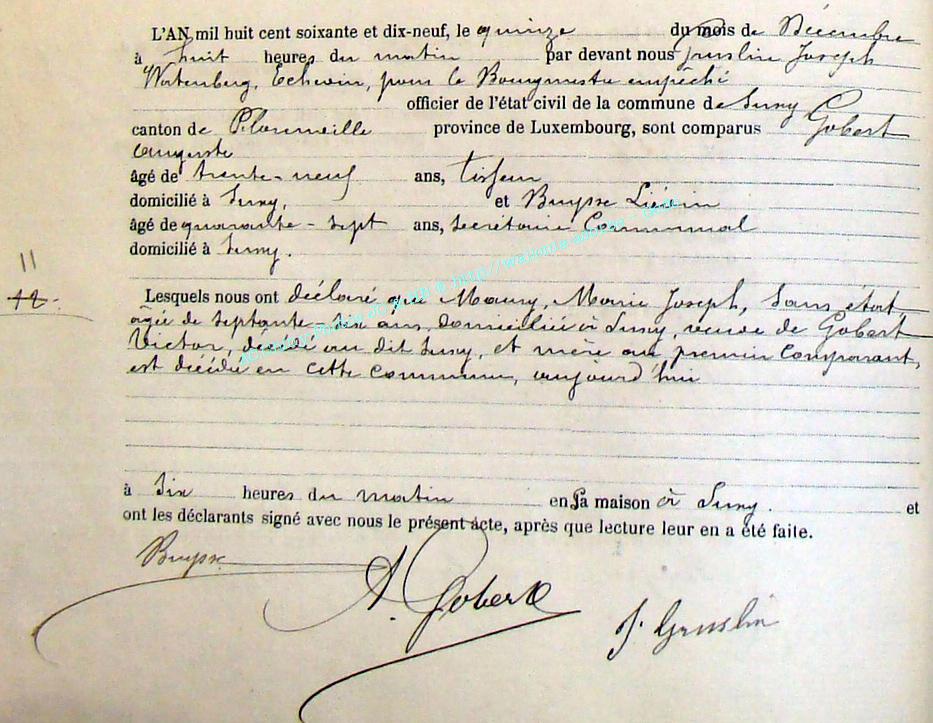 L'AN mil huit cent soixante et dix-neuf, le quinze du mois de Décembre
à huit heures du matin par devant nous Joseph
Échevin, pour le Bourgmestre empêché
officier de l'état civil de la commune de Suxy
canton de province de Luxembourg, sont comparus Gobert
Auguste
âgé de trente-neuf ans,
domicilié à Suxy, et Buysse Liévin
âgé de quarante-sept ans, Secrétaire Communal
domicilié à Suxy.
11
12.
Lesquels nous ont déclaré que Maury, Marie Joseph, Sans état
âgée de septante-six ans, domiciliée à Suxy, veuve de Gobert
Victor, décédé au dit Suxy, et mère au premier Comparant,
est décédée en cette Commune, aujourd'hui
à six heures du matin en sa maison à Suxy. et
ont les déclarants signé avec nous le présent acte, après que lecture leur en a été faite.
Buysse
A. Gobert
J. Gruslin